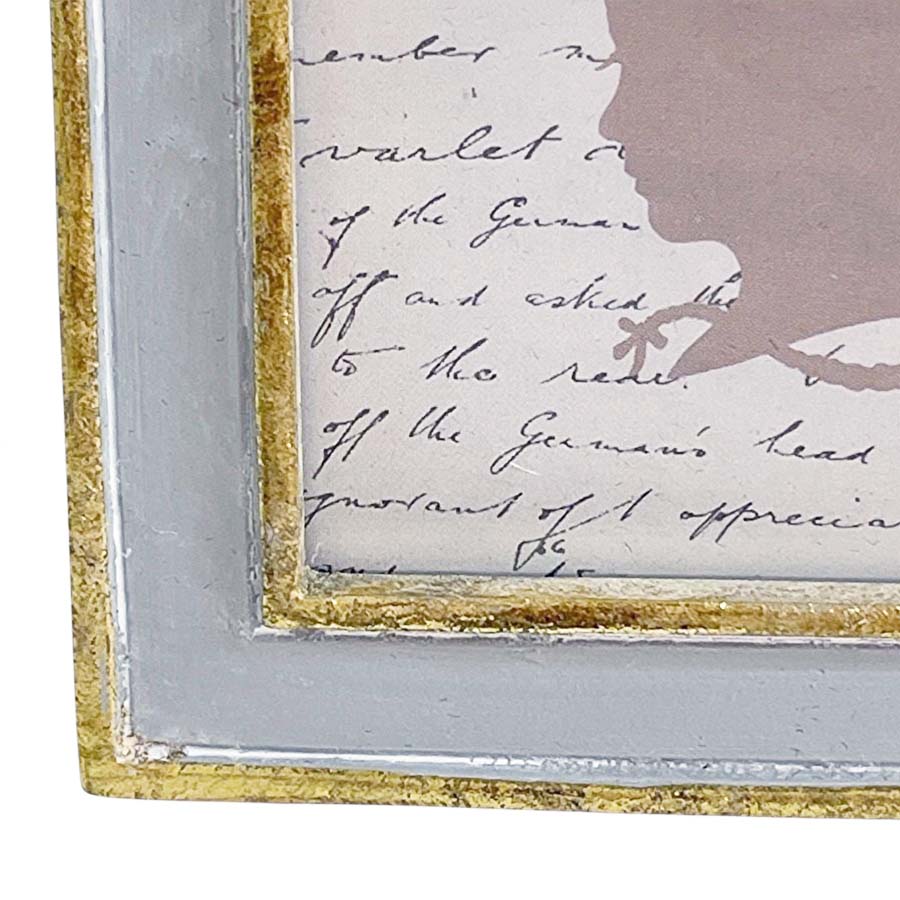 ember
varlet
of the German
off and asked the
to the rear.
off the German's head
ignorant of I apprecia